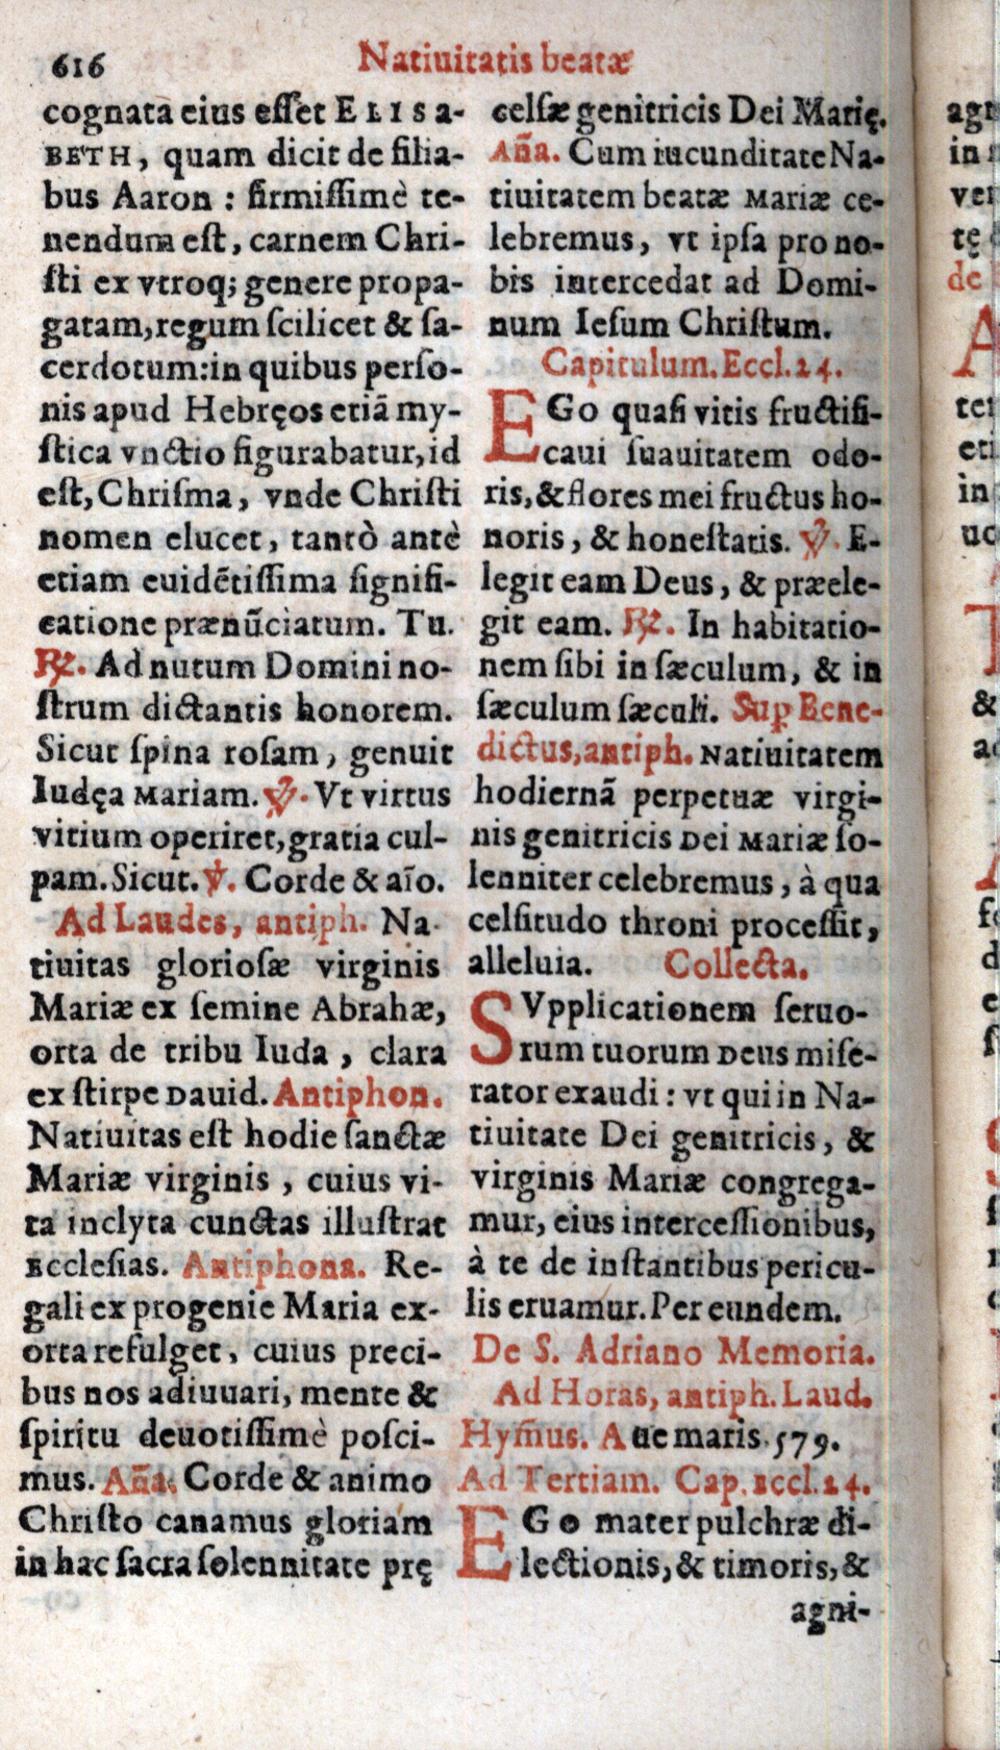 616
Natiuitatis beatæ
cognata eius eſſet ELISA-
BETH, quam dicit de filia-
bus Aaron : firmiſſimè te-
nendum eſt, carnem Chri-
ſti ex vtroq; genere propa-
gatam, regum ſcilicet & ſa-
cerdotum: in quibus perſo-
nis apud Hebręos etiã my-
ſtica vnctio figurabatur, id
eſt, Chriſma, vnde Chriſti
nomen elucet, tantò antè
etiam euidẽtiſſima ſignifi-
catione prænũciatum. Tu.
℟. Ad nutum Domini no-
ſtrum dictantis honorem.
Sicut ſpina roſam, genuit
Iudęa Mariam. ℣. Vt virtus
vitium operiret, gratia cul-
pam. Sicut. ℣. Corde & aĩo.
Ad Laudes, antiph. Na-
tiuitas glorioſæ virginis
Mariæ ex ſemine Abrahæ,
orta de tribu Iuda, clara
ex ſtirpe Dauid. Antiphon.
Natiuitas eſt hodie ſanctæ
Mariæ virginis, cuius vi-
ta inclyta cunctas illuſtrat
Eccleſias. Antiphona. Re-
gali ex progenie Maria ex-
orta refulget, cuius preci-
bus nos adiuuari, mente &
ſpiritu deuotiſſimè poſci-
mus. Aña. Corde & animo
Chriſto canamus gloriam
in hac ſacra ſolennitate prę
celſæ genitricis Dei Marię.
Aña. Cum iucunditate Na-
tiuitatem beatæ Mariæ ce-
lebremus, vt ipſa pro no-
bis intercedat ad Domi-
num Ieſum Chriſtum.
Capitulum. Eccl. 24.
EGo quaſi vitis fructifi-
caui ſuauitatem odo-
ris, & flores mei fructus ho-
noris, & honeſtatis. ℣. E-
legit eam Deus, & præele-
git eam. ℟. In habitatio-
nem ſibi in ſæculum, & in
ſæculum ſæculi. Sup Bene-
dictus, antiph. Natiuitatem
hodiernã perpetuæ virgi-
nis genitricis Dei Mariæ ſo-
lenniter celebremus, à qua
celſitudo throni proceſſit,
alleluia. Collecta.
SVpplicationem ſeruo-
rum tuorum Deus miſe-
rator exaudi: vt qui in Na-
tiuitate Dei genitricis, &
virginis Mariæ congrega-
mur, eius interceſſionibus,
à te de inſtantibus pericu-
lis eruamur. Per eundem.
De S. Adriano Memoria.
Ad Horas, antiph. Laud.
Hym̃us. Aue maris. 579.
Ad Tertiam. Cap. Eccl. 24.
EGo mater pulchræ di-
lectionis, & timoris, &
agni-